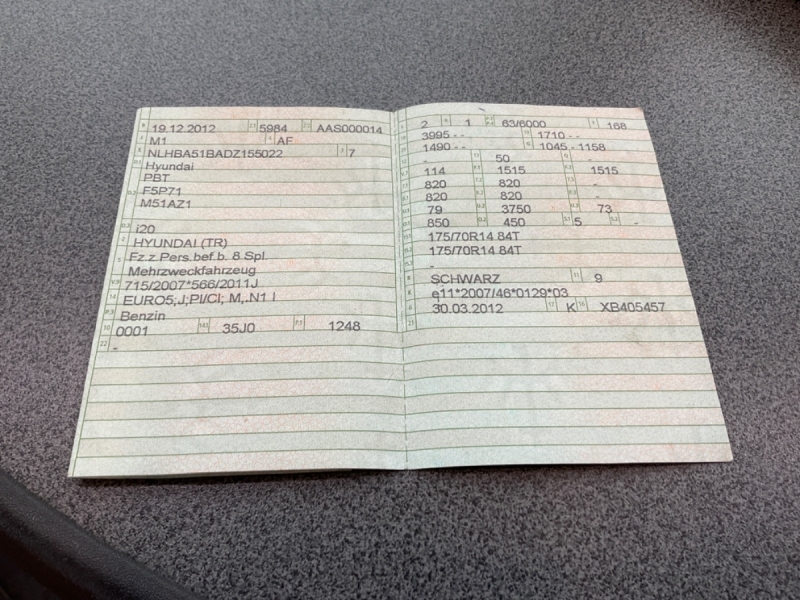 19.12.2012 5984 AAS000014
M1 AF
NLHBA51BADZ155022 7
Hyundai
PBT
F5P71
M51AZ1
i20
HYUNDAI (TR)
Fz.z.Pers.bef.b. 8 Spl.
Mehrzweckfahrzeug
715/2007*566/2011J
EURO5;J;PI/CI; M,.N1 I
Benzin
10 0001 14.1 35J0 P.1 1248
22 -
2 1 63/6000 168
3995 - - 1710 - -
1490 - - 1045 - 1158
- 50 -
114 1515 1515
820 820 -
820 820 -
79 3750 73
850 450 5 -
175/70R14 84T
175/70R14 84T
-
SCHWARZ 11 9
e11*2007/46*0129*03
30.03.2012 17 K 16 XB405457
21